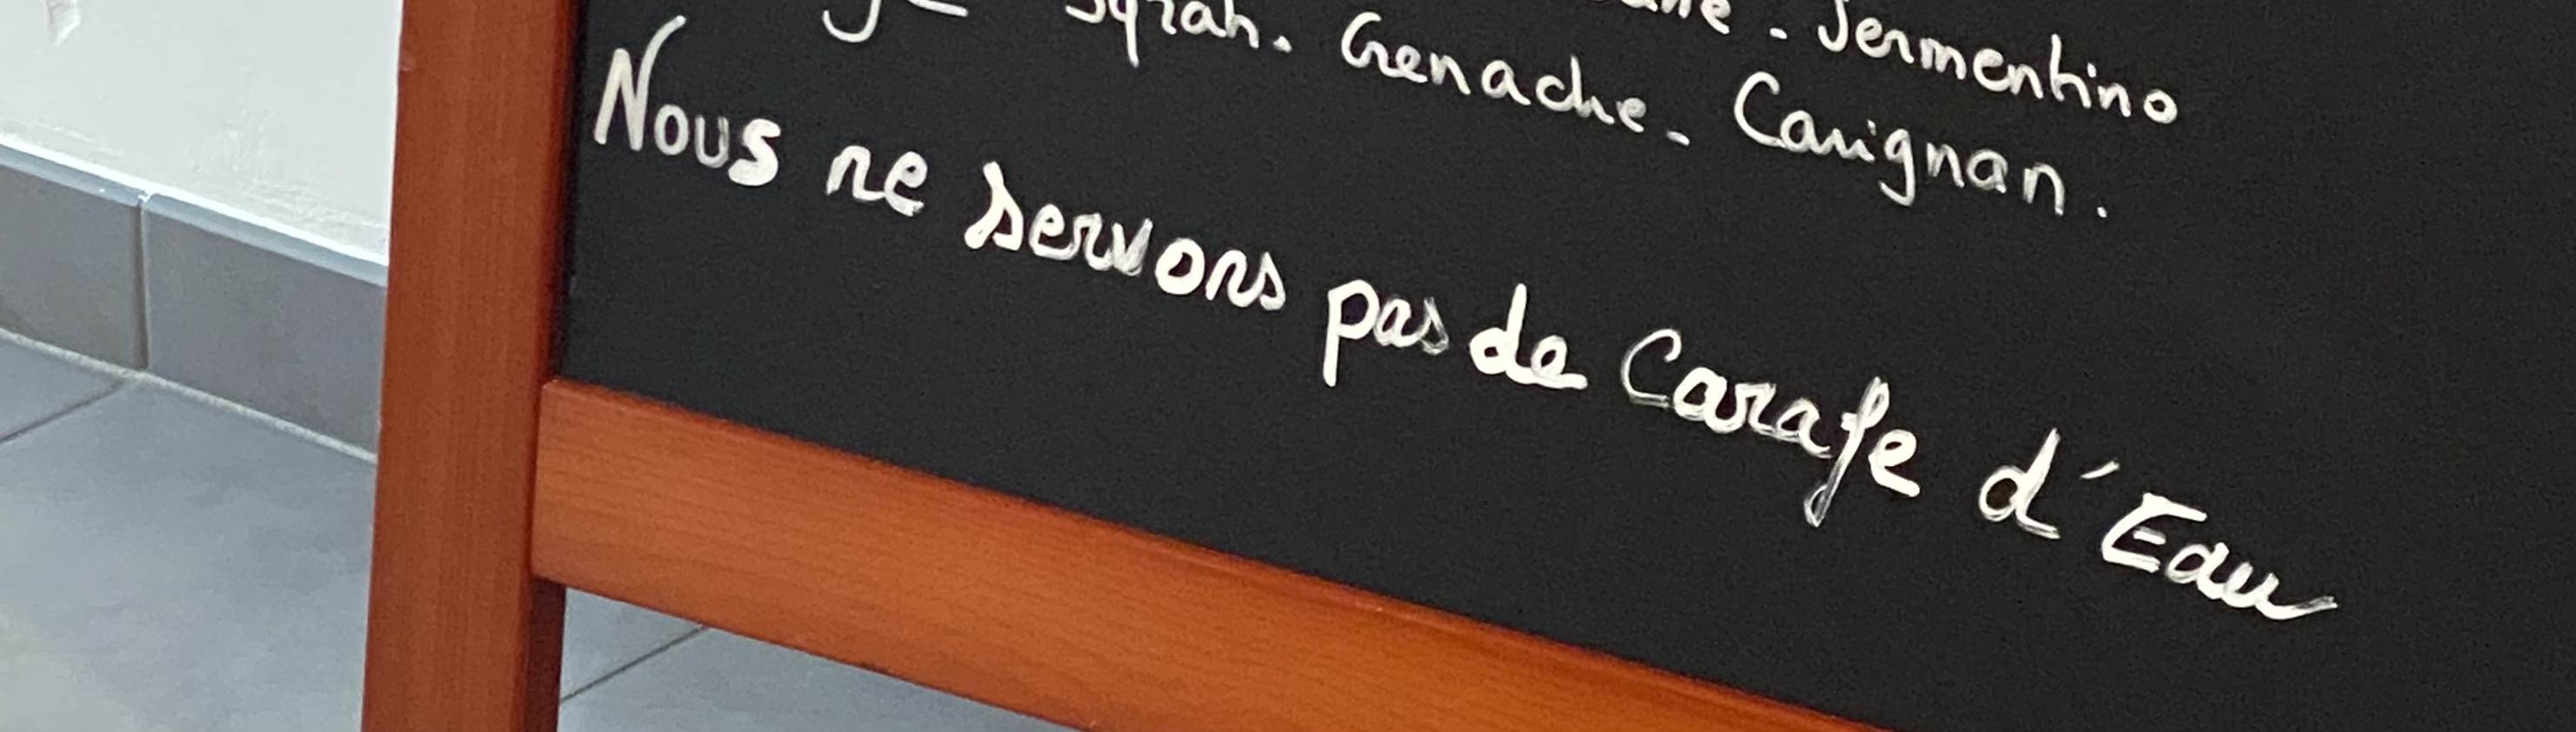 - Vermentino
Syrah. Grenache - Carignan.
Nous ne servons pas de Carafe d'Eau